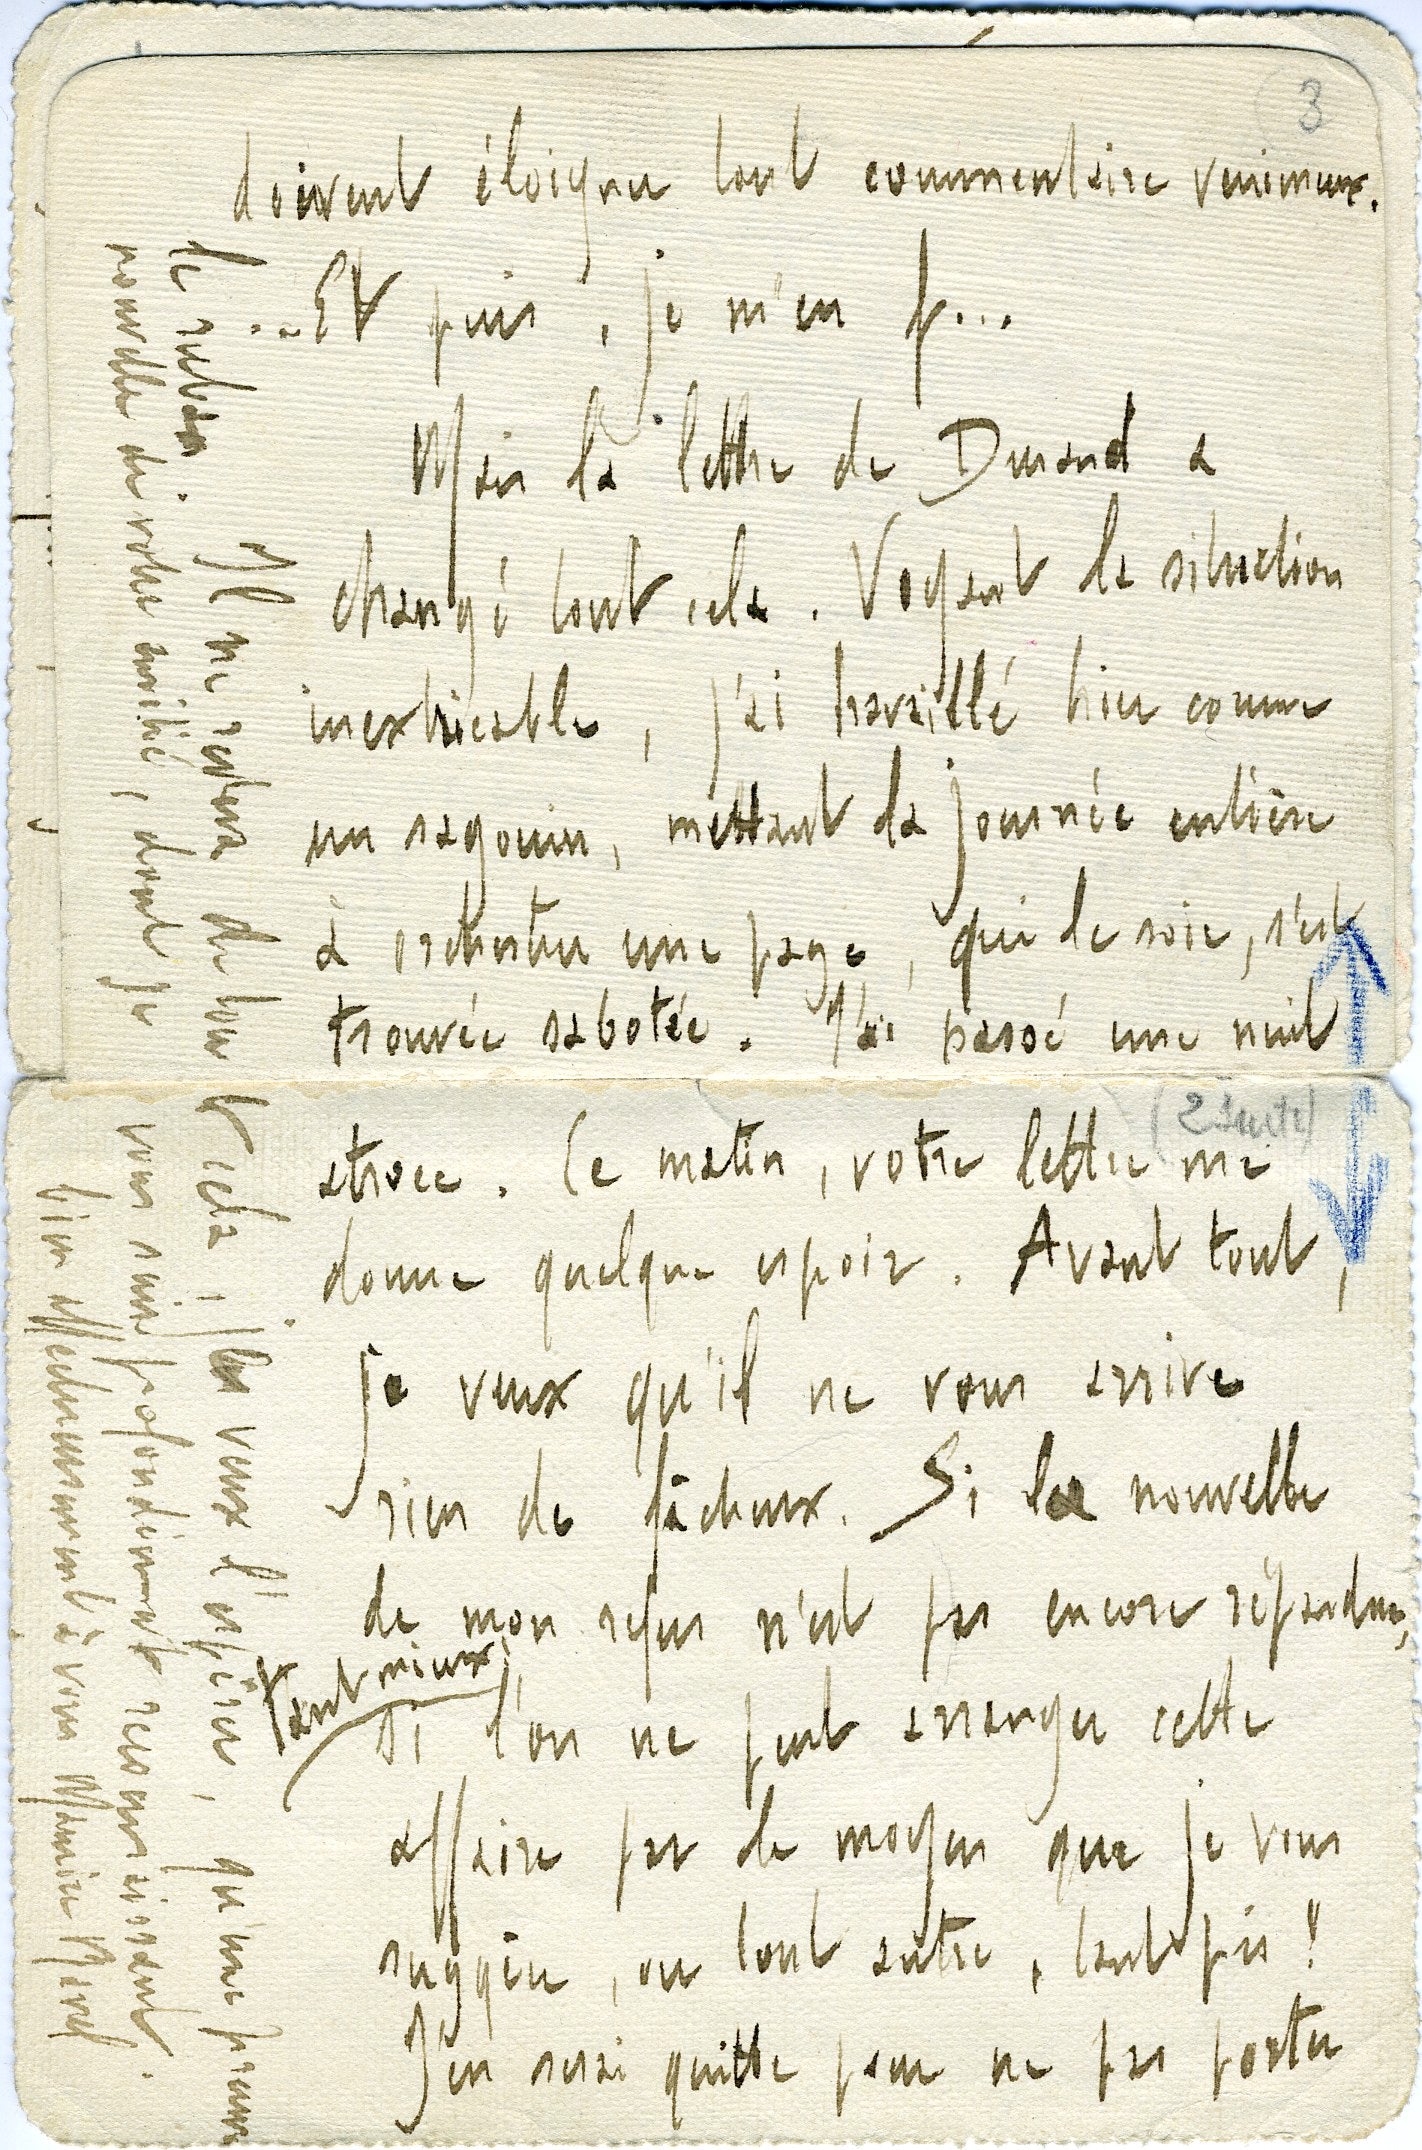 3
doivent éloigner tout commentaire venimeux.
...Et puis, je m'en f...
Mais la lettre de Durand a
changé tout cela. Voyant la situation
inextricable, j'ai travaillé hier comme
un sagouin, mettant la journée entière
à orchestrer une page, qui le soir, s'est
trouvée sabotée. J'ai passé une nuit
(2 suite)
atroce. Ce matin, votre lettre me
donne quelque espoir. Avant tout,
je veux qu'il ne vous arrive
rien de fâcheux. Si la nouvelle
de mon refus n'est pas encore répandue,
tant mieux.
Si l'on ne peut arranger cette
affaire par le moyen que je vous
suggère, ou tout autre, tant pis!
J'en serai quitte pour ne pas porter
le ruban. Il ne restera de tout cela, je veux l'espérer, qu'une preuve
nouvelle de votre amitié, dont je vous suis profondément reconnaissant.
bien affectueusement à vous Maurice Ravel